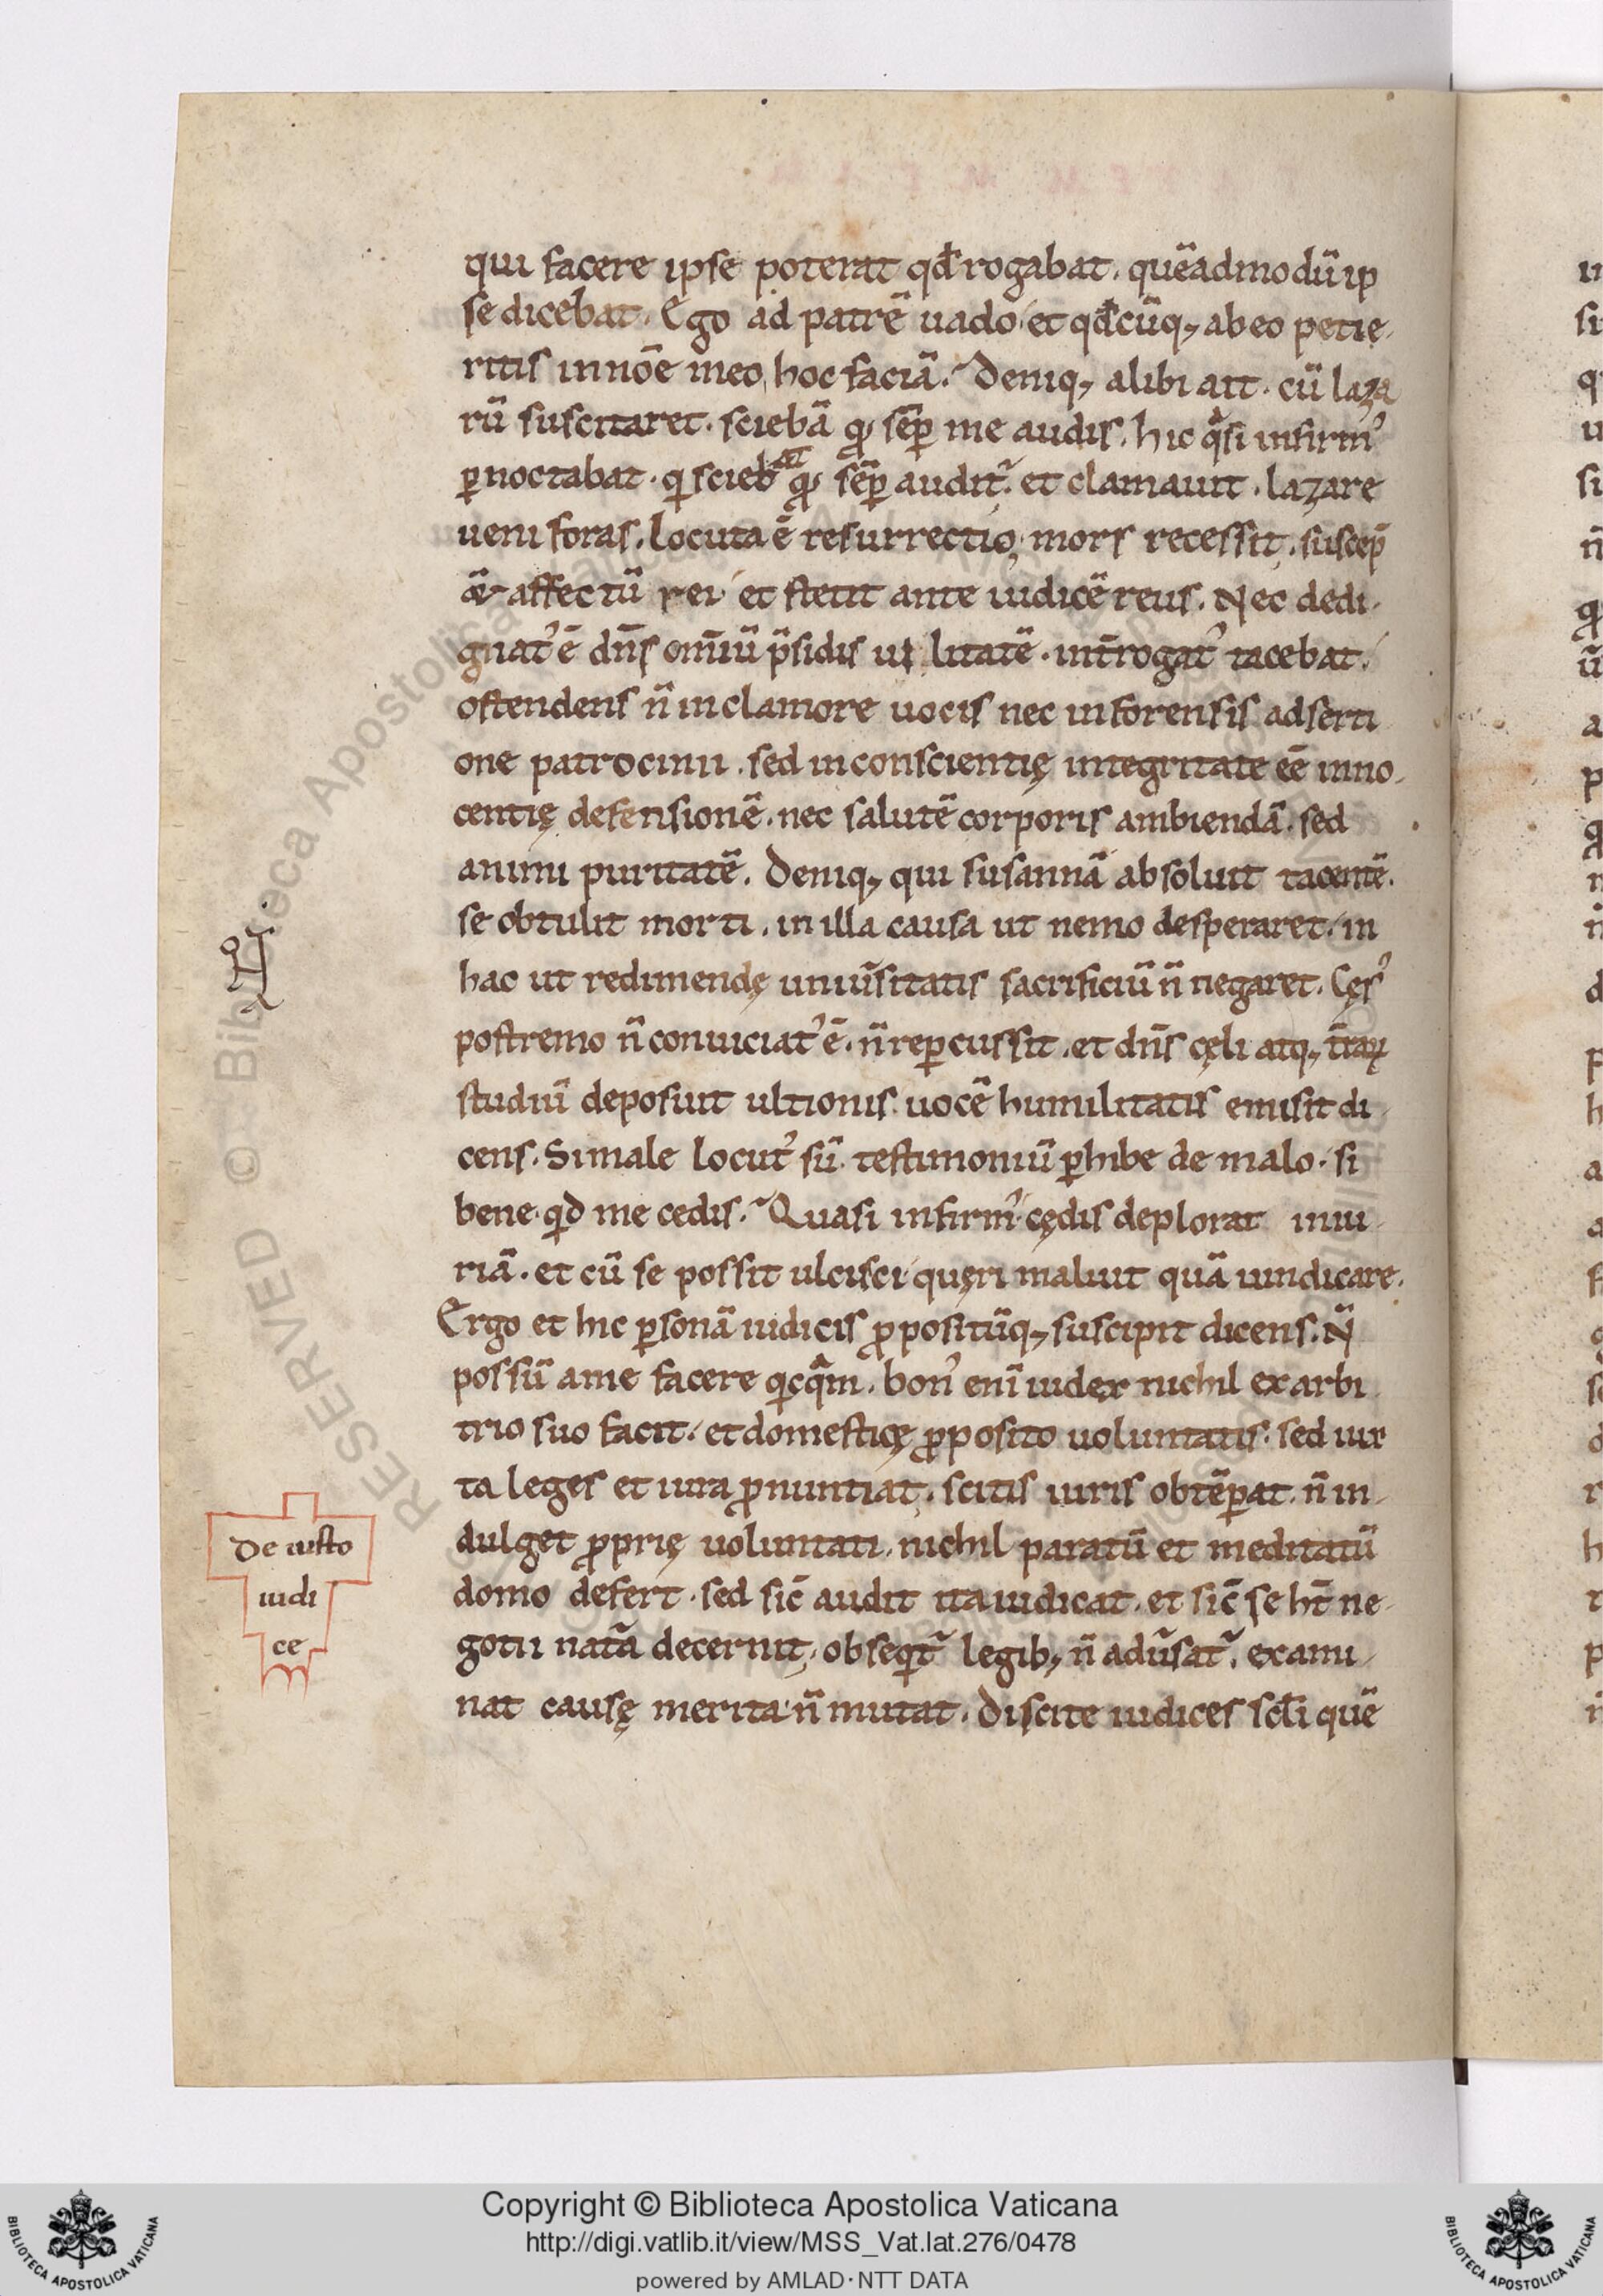 qui facere ipse poterat qđ rogabat. quēadmodū ip
se dicebat. Ego ad patrē uado et qđcūq; ab eo petie
ritis in noīe meo, hoc faciā. Deniq; alibi ait. cū laza
rū suscitaret. sciebā qꝛ sēp me audis. hic qᵃsi infirmꝰ
ꝑnoctabat. qui sciebat qꝛ sēp audit᷑. et clamauit. lazare
ueni foras. Locuta ē resurrectio, mors recessit. suscep̄
affectū rei et stetit ante iudicē reus. Nec dedi
gnatꝰ ē dn̄s om̄iū p̄sidis utilitatē. int̄rogatꝰ tacebat.
ostendens n̄ in clamore uocis nec in forensis adserti
one patrocinii. sed in conscientię integritate eē inno
centię defensionē. nec salutē corporis ambiendā. sed
animi puritatē. Deniq; qui susannā absoluit tacentē.
se obtulit morti. in illa causa ut nemo desperaret. in
hac ut redimendę uniūsitatis sacrificiū n̄ negaret. Cęsꝰ
postremo n̄ conuiciatꝰ ē. n̄ reꝑcussit. et dn̄s cęli atq; t̄raꝝ
studiū deposuit ultionis. uocē humilitatis emisit di
cens. Si male locutꝰ sū. testimoniū ꝑhibe de malo. si
bene. qid me cedis. Quasi infirmꝰ cędis deplorat iniu
riā. et cū se possit ulcisci quęri maluit quā uindicare.
Ergo et hic ꝑsonā iudicis ꝓpositūq; suscipit dicens. N̄
possū a me facere qicqᵃm. bonꝰ enī iudex nichil ex arbi
trio suo facit. et domesticę ꝓposito uoluntatis. sed iux
ta leges et iura ꝓnuntiat. scitis iuris obtēꝑat. n̄ in
dulget ꝓprię uoluntati. nichil paratū et meditatū
domo defert. sed sic̄ audit ita iudicat. et sic̄ se ht̄ ne
gotii nat᷑a decernit. obseqit᷑ legib; n̄ adūsat᷑. exami
nat causę merita n̄ mutat. Discite iudices scl̄i quē
De iusto
iudi
ce
RESERVED © Biblioteca Apostolica Vaticana
Copyright © Biblioteca Apostolica Vaticana
http://digi.vatlib.it/view/MSS_Vat.lat.276/0478
powered by AMLAD·NTT DATA
BIBLIOTECA APOSTOLICA VATICANA
BIBLIOTECA APOSTOLICA VATICANA